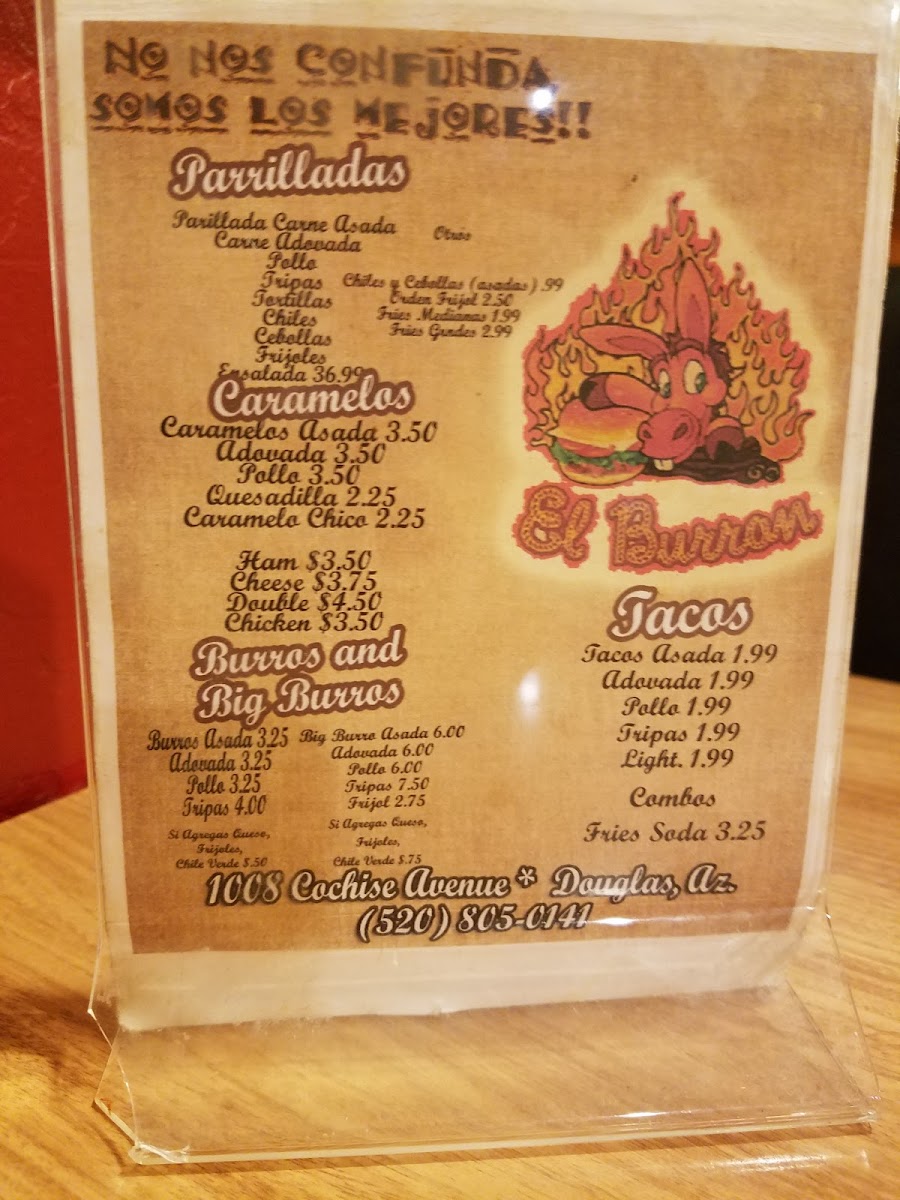 NO NOS CONFUNDA
SOMOS LOS MEJORES!!
Parrilladas
Parillada Carne Asada
Carne Adovada
Pollo
Tripas
Tortillas
Chiles
Cebollas
Frijoles
Ensalada 36.99
Otros
Chiles y Cebollas (asadas) .99
Orden Frijol 2.50
Fries Medianas 1.99
Fries Grndes 2.99
Caramelos
Caramelos Asada 3.50
Adovada 3.50
Pollo 3.50
Quesadilla 2.25
Caramelo Chico 2.25
Ham $3.50
Cheese $3.75
Double $4.50
Chicken $3.50
El Burron
Burros and
Big Burros
Burros Asada 3.25
Adovada 3.25
Pollo 3.25
Tripas 4.00
Si Agregas Queso,
Frijoles,
Chile Verde $.50
Big Burro Asada 6.00
Adovada 6.00
Pollo 6.00
Tripas 7.50
Frijol 2.75
Si Agregas Queso,
Frijoles,
Chile Verde $.75
Tacos
Tacos Asada 1.99
Adovada 1.99
Pollo 1.99
Tripas 1.99
Light. 1.99
Combos
Fries Soda 3.25
1008 Cochise Avenue * Douglas, Az.
(520) 805-0141